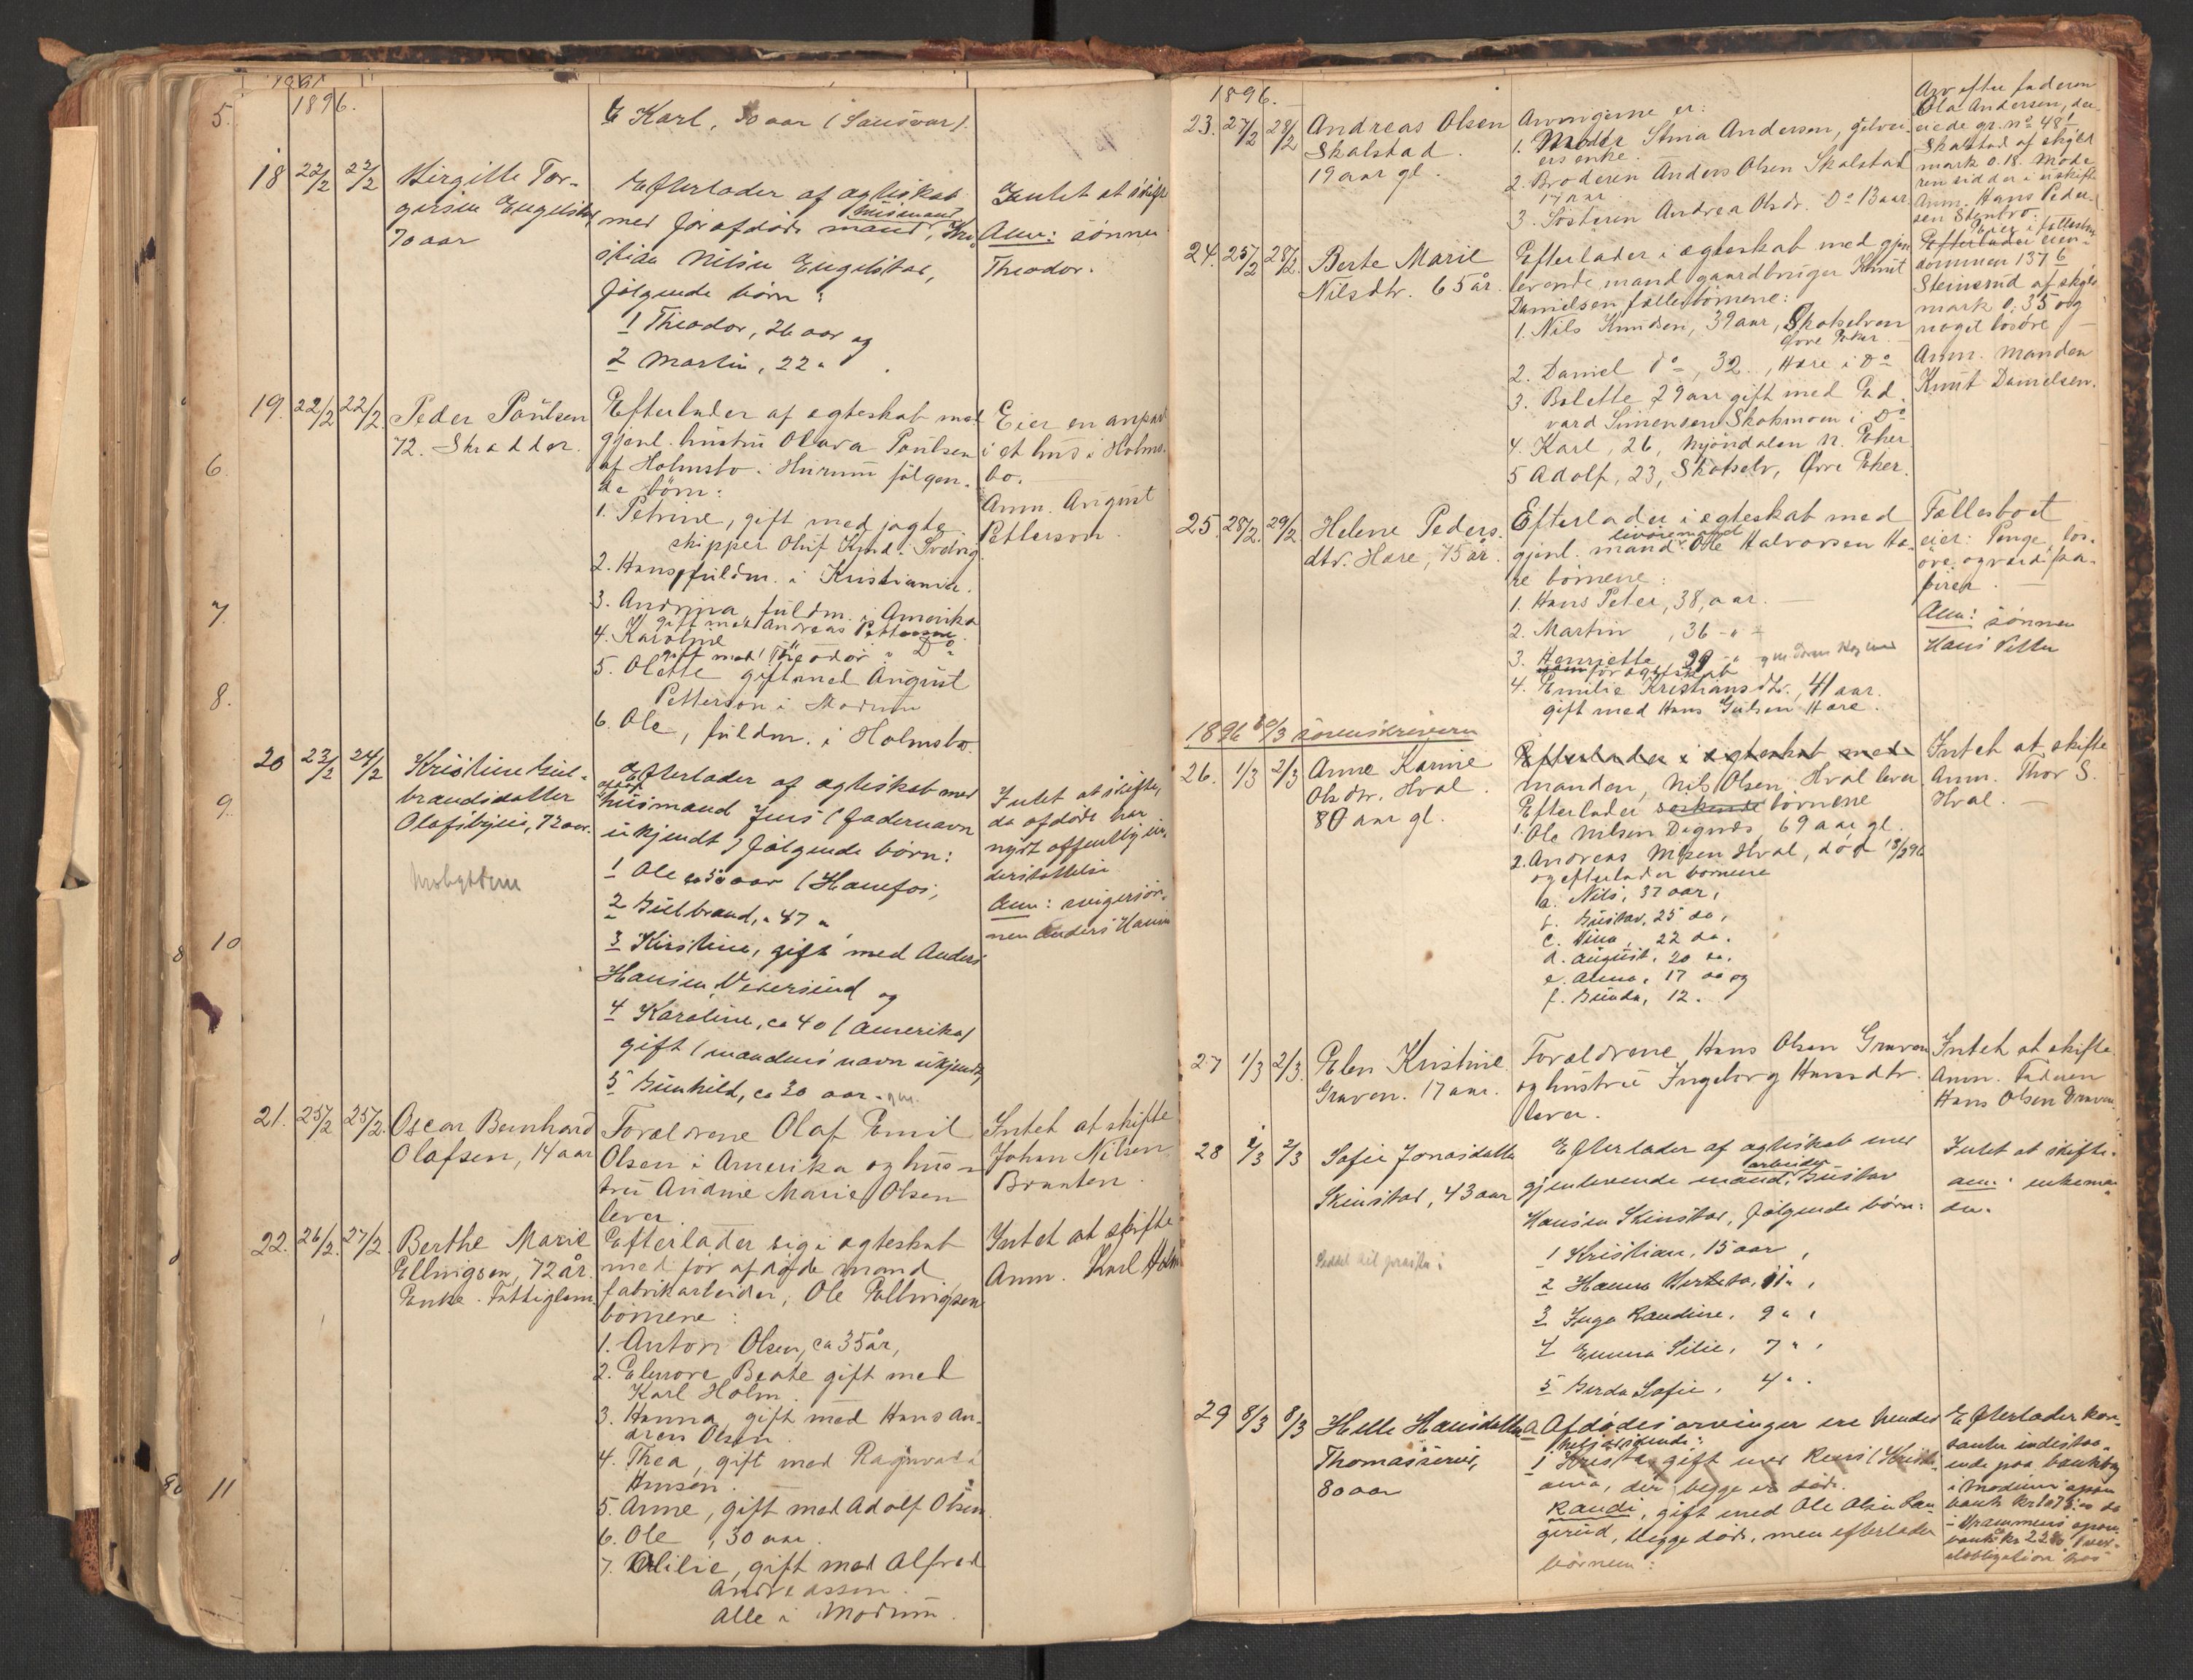 1896.
6 Karl, 30 aar (Sandsvær).
18 22/2 22/2
Birgitte Tor-
gersen Engelstad,
70 aar
Efterlader af ægteskab
med forafdøde husmand
stian Nilsen Engelstad,
følgende børn:
1 Theodor, 26 aar og
2 Martin, 22 "
Intet at skifte
Anm: sønnen
Theodor.
19. 22/2 22/2.
Peder Paulsen
72. Skrædder.
Efterlader af ægteskab med
gjenl. hustru Olava Paulsen
af Holmsbo i Hurum følgen-
de børn:
1. Petrine, gift med jagte-
skipper Oluf Knud. Svelvig
2. Hans, fuldm. i Kristiania.
3. Andrina, fuldm. i Amerika
gift med Andreas Petterson
4. Karoline
gift med Theodor " Do
5. Olette gift med August
Petterson i Modum
6. Ole, fuldm. i Holmsbo.
Eier en anpart
i et hus i Holms-
bo.
Anm. August
Petterson.
20 23/2 24/2
Kristine Gul-
brandsdatter
Olafsbyen, 72 aar.
Efterlader af ægteskab med
husmand Jens (fadernavn
ukjendt) følgende børn:
1 Ole ca 50 aar (Hønefos,
2 Gulbrand, " 47 "
3 Kirstine, gift med Anders
Hansen, Vikersund og
4 Karoline, ca 40 (Amerika)
gift (mandens navn ukjendt)
5 Gunhild, ca 30 aar. gm.
Intet at skifte,
da afdøde har
nydt offentlig un-
derstøttelse
Anm: svigersøn-
nen Anders Hansen
21. 25/2 25/2.
Oscar Bernhard
Olafsen, 14 aar
Forældrene Olaf Emil
Olsen i Amerika og hus-
tru Andine Marie Olsen
lever
Intet at skifte
Johan Nilsen
Braaten.
22. 26/2. 27/2.
Berthe Marie
Ellingsen, 72 år.
Enke. Fattiglem.
Efterlader sig i ægteskab
med før afdøde mand
fabrikarbeider, Ole Ellingsen
børnene:
1. Anton Olsen, ca 35 år,
2. Elenore Beate gift med
Karl Holm.
3. Hanna, gift med Hans An-
dreas Olsen.
4. Thea, gift med Ragnvald
Hansen.
5. Anne, gift med Adolf Olsen
6. Ole, 30 aar.
7. Olilie, gift med Alfred
Andreassen.
Alle i Modum.
Intet at skifte
Anm. Karl Holm
1896.
23. 27/2 28/2
Andreas Olsen
Skalstad.
19 aar gl.
Arvingerne er:
1. Moder Stina Andersen, gaardei-
ers enke.
2. Broderen Anders Olsen Skalstad
17 aar
3. Søsteren Andrea Olsdr. Do 13 aar
Arv efter faderen
Ola Andersen, der
eiede gr. no 48/1
Skalstad af skyld
mark 0.18. Mode-
ren sidder i uskifte
Anm. Hans Peder-
sen Stenbro.
24. 25/2 28/2.
Berte Marie
Nilsdtr. 65 år.
Efterlader i ægteskab med gjen-
levende mand gaardbruger Knut
Danielsen fællesbørnene:
1. Nils Knudsen, 39 aar, Skotselven
Øvre Eker.
2. Daniel do, 32. , Hære i Do
3. Bolette 29 aar gift med Ed-
vard Simensen Skotsmoen i Do
4. Karl, 26, Mjøndalen N. Eker
5 Adolf, 23, Skotselv, Øvre Eker.
Eier i fællesbo
Efterlader eien-
dommen 137 6
Steinsrud af skyld
mark 0,35 og
noget løsøre
Anm. Manden
Knut Danielsen.
25. 28/2. 29/2
Helene Peders-
dtr. Hære, 75 år.
Efterlader i ægteskab med
gjenl. mand Ole Halvorsen Hæ-
re børnene:
1. Hans Peter, 38, aar.
2. Martin, 36 - " -
3. Henriette 29 - "
før ægteskab
4. Emilie Kristiansdtr., 41 aar.
gift med Hans Gulsen Hære.
Fællesboet
eier: Penge, løs-
øre, og værdipa-
pirer.
Anm: sønnen
Hans Petter
1896 10/3 sorenskriveren
26. 1/3 2/3
Anne Karine
Olsdtr. Hval.
80 aar gl.
Efterlader i ægteskab med
manden, Nils Olsen Hval lever
Efterlader børnene
1. Ole Nilsen Degnes, 69 aar gl.
2. Andreas Nilsen Hval, død
og efterlader børnene
a. Nils, 37 aar,
b. Gustav, 25 do,
c. Nina, 22 do.
d. August, 20 do.
e. Anna, 17 do og
f. Gunda, 12.
Intet at skifte
Anm. Thor S.
Hval.
27 1/3 2/3.
Elen Kristine
Graven. 17 aar.
Forældrene, Hans Olsen Graven
og hustru Ingeborg Hansdtr.
lever.
Intet at skifte
Anm. Faderen
Hans Olsen Graven
28 2/3 2/3
Sofie Jonasdatter
Skinstad, 43 aar
Efterlader af ægteskab med
gjenlevende mand, arbeider Gustav
Hansen Skinstad, følgende børn:
1 Kristian, 15 aar,
2 Hanna Bertea, 11 " ,
3 Inga Randine, 9 " ,
4 Emma Silie, 7 " ,
5 Gerda Sofie, 4 " .
Intet at skifte.
anm.: enkeman-
den.
29 8/3 8/3
Helle Hansdatter
Thomasseie,
80 aar
Afdødes arvinger ere hendes
helsødskende:
1 Kristi, gift med Reier (Kristi-
ania, der begge er døde.
Randi, gift med Ole Olsen
gerud, begge døde, men efterlader
børnene:
Efterlader kon-
tanter indestaa-
ende paa bankbog
i Modum spare-
bank
i Drammens spare-
bank
5.
6.
7.
8.
9.
10
11